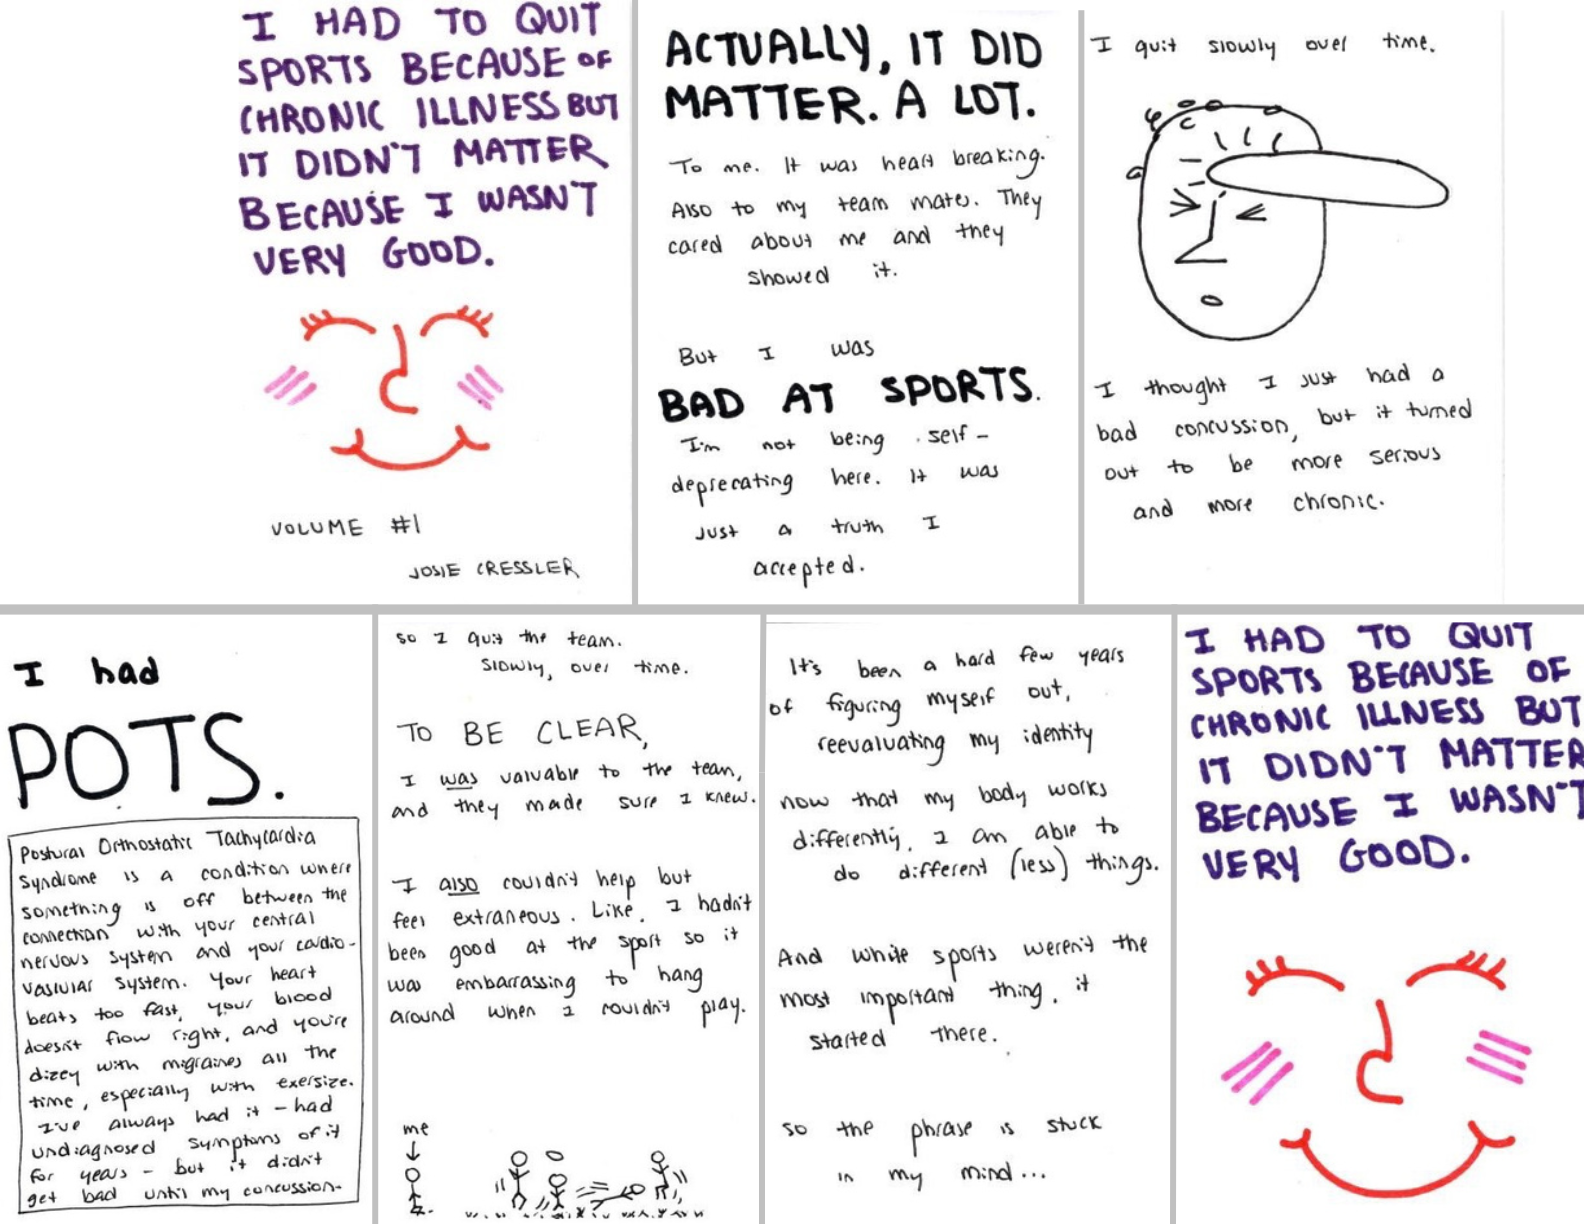 I HAD TO QUIT
SPORTS BECAUSE OF
CHRONIC ILLNESS BUT
IT DIDN'T MATTER
BECAUSE I WASN'T
VERY GOOD.
VOLUME #1
JOSIE CRESSLER
ACTUALLY, IT DID
MATTER. A LOT.
To me. It was heart breaking.
Also to my team mates. They
cared about me and they
showed it.
But I was
BAD AT SPORTS.
I'm not being self-
deprecating here. It was
just a truth I
accepted.
I quit slowly over time.
I thought I just had a
bad concussion, but it turned
out to be more serious
and more chronic.
I had
POTS.
Postural Orthostatic Tachycardia
Syndrome is a condition where
something is off between the
connection with your central
nervous system and your cardio-
vaslular system. Your heart
beats too fast, your blood
doesn't flow right, and you're
dizzy with migraines all the
time, especially with exersize.
I've always had it - had
undiagnosed symptoms of it
for years - but it didn't
get bad until my concussion.
so I quit the team.
Slowly, over time.
TO BE CLEAR,
I was valuable to the team,
and they made sure I knew.
I also couldn't help but
feel extraneous. Like, I hadn't
been good at the sport so it
was embarrassing to hang
around when I couldn't play.
me
It's been a hard few years
of figuring myself out,
reevaluating my identity
now that my body works
differently, I am able to
do different (less) things.
And while sports weren't the
most important thing, it
started there.
so the phrase is stuck
in my mind...
I HAD TO QUIT
SPORTS BECAUSE OF
CHRONIC ILLNESS BUT
IT DIDN'T MATTER
BECAUSE I WASN'T
VERY GOOD.